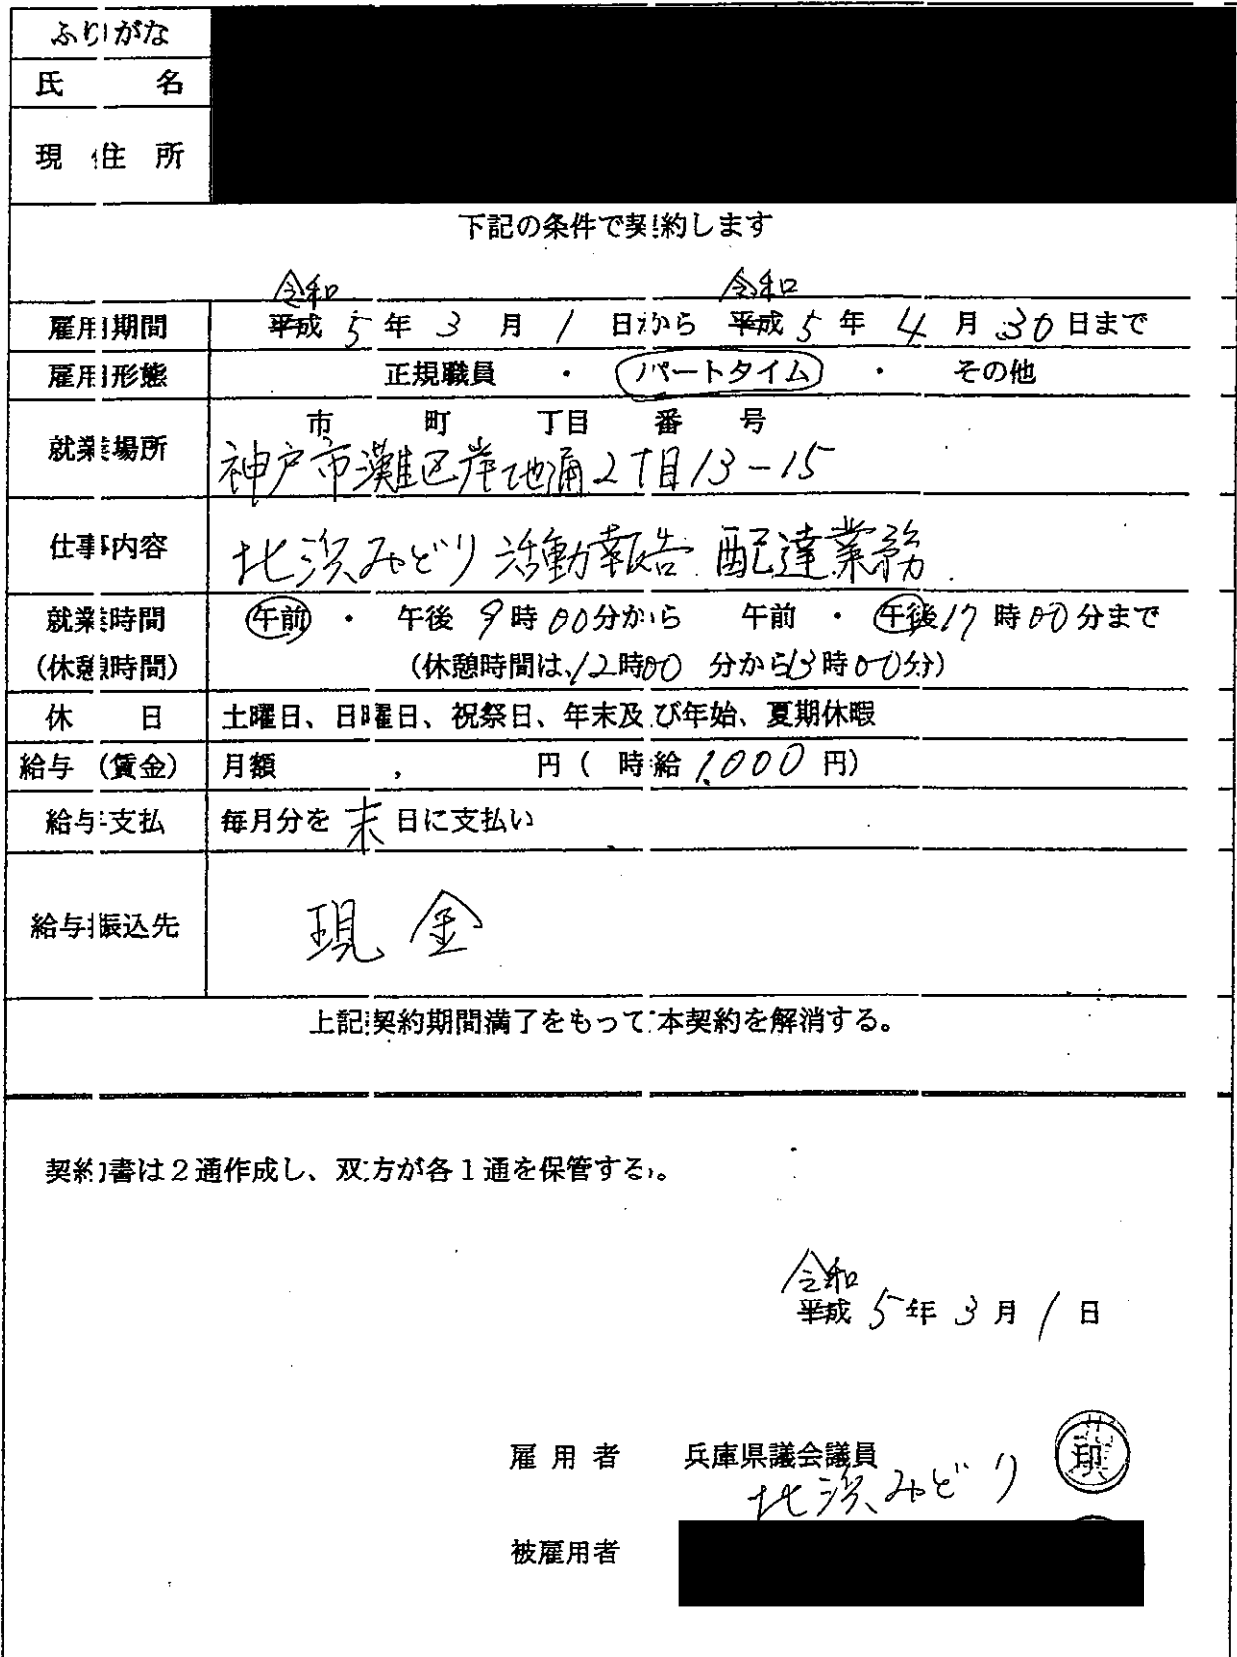 ふりがな
氏 名
現 住 所
下記の条件で契約します
令和 令和
雇用期間 平成 5 年 3 月 1 日から 平成 5 年 4 月 30 日まで
雇用形態 正規職員 ・ パートタイム ・ その他
市 町 丁目 番 号
就業場所 神戸市灘区岸地通2丁目13-15
仕事内容 北浜みどり活動報告 配達業務
就業時間 午前 ・ 午後 9時00分から 午前 ・ 午後17時00分まで
(休憩時間) (休憩時間は、12時00 分から13時00分)
休 日 土曜日、日曜日、祝祭日、年末及び年始、夏期休暇
給与 (賃金) 月額 , 円 ( 時給 1,000 円)
給与支払 毎月分を 末 日に支払い
給与振込先 現金
上記契約期間満了をもって本契約を解消する。
契約書は2通作成し、双方が各1通を保管する。
令和
平成 5年 3月 1 日
雇 用 者 兵庫県議会議員 印
北浜みどり
被雇用者